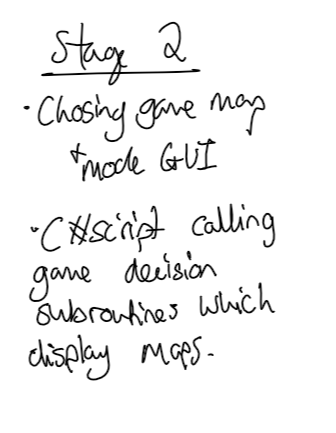 Stage 2
· Chosing game map
+ mode GUI
· C# script calling
game decision
subroutines which
display maps.